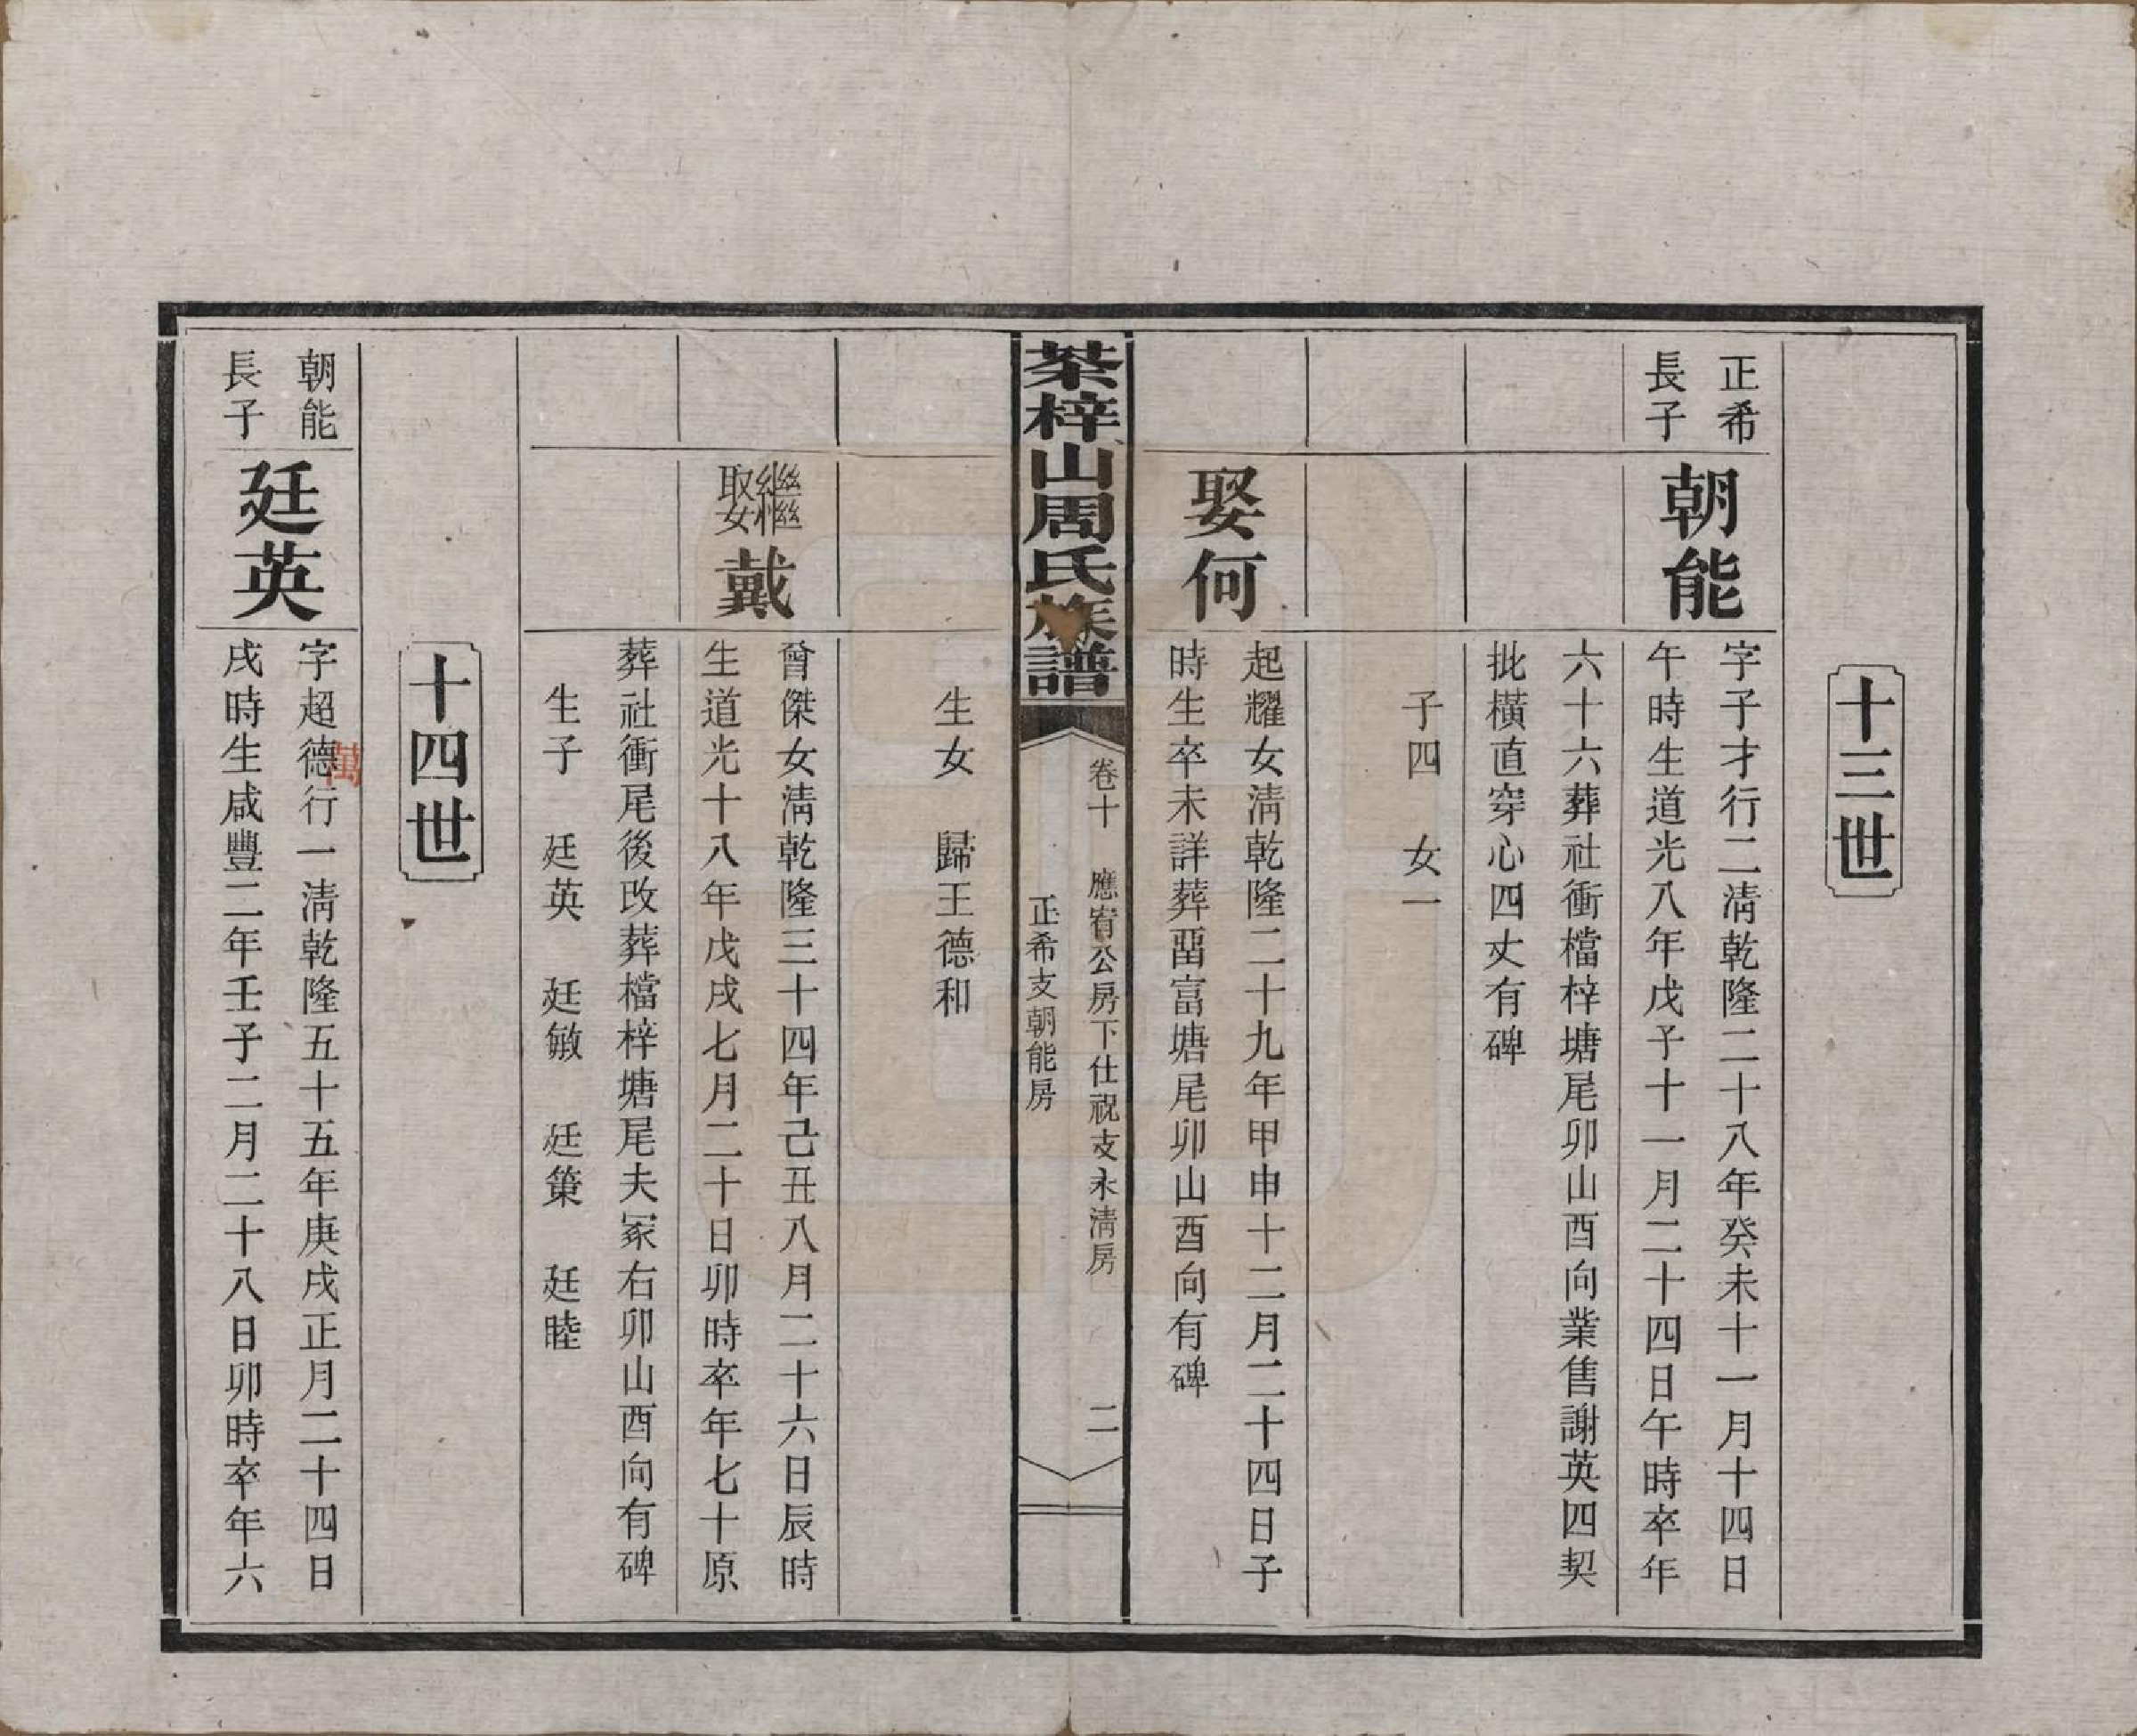 十三世
正希
長子
朝能
字子才行二淸乾隆二十八年癸未十一月十四日
午時生道光八年戊子十一月二十四日午時卒年
六十六葬社衝檔梓塘尾卯山酉向業售謝英四契
批橫直穿心四丈有碑
子四　女一
娶何
起耀女淸乾隆二十九年甲申十二月二十四日子
時生卒未詳葬畱富塘尾卯山酉向有碑
茶梓山周氏族譜
卷十　應宥公房下仕祝支永淸房
正希支朝能房
二
生女　歸王德和
繼娶戴
曾傑女淸乾隆三十四年己丑八月二十六日辰時
生道光十八年戊戌七月二十日卯時卒年七十原
葬社衝尾後改葬檔梓塘尾夫冢右卯山酉向有碑
生子　廷英　廷敏　廷策　廷睦
十四世
朝能
長子
廷英
字超德行一淸乾隆五十五年庚戌正月二十四日
戌時生咸豐二年壬子二月二十八日卯時卒年六
萬